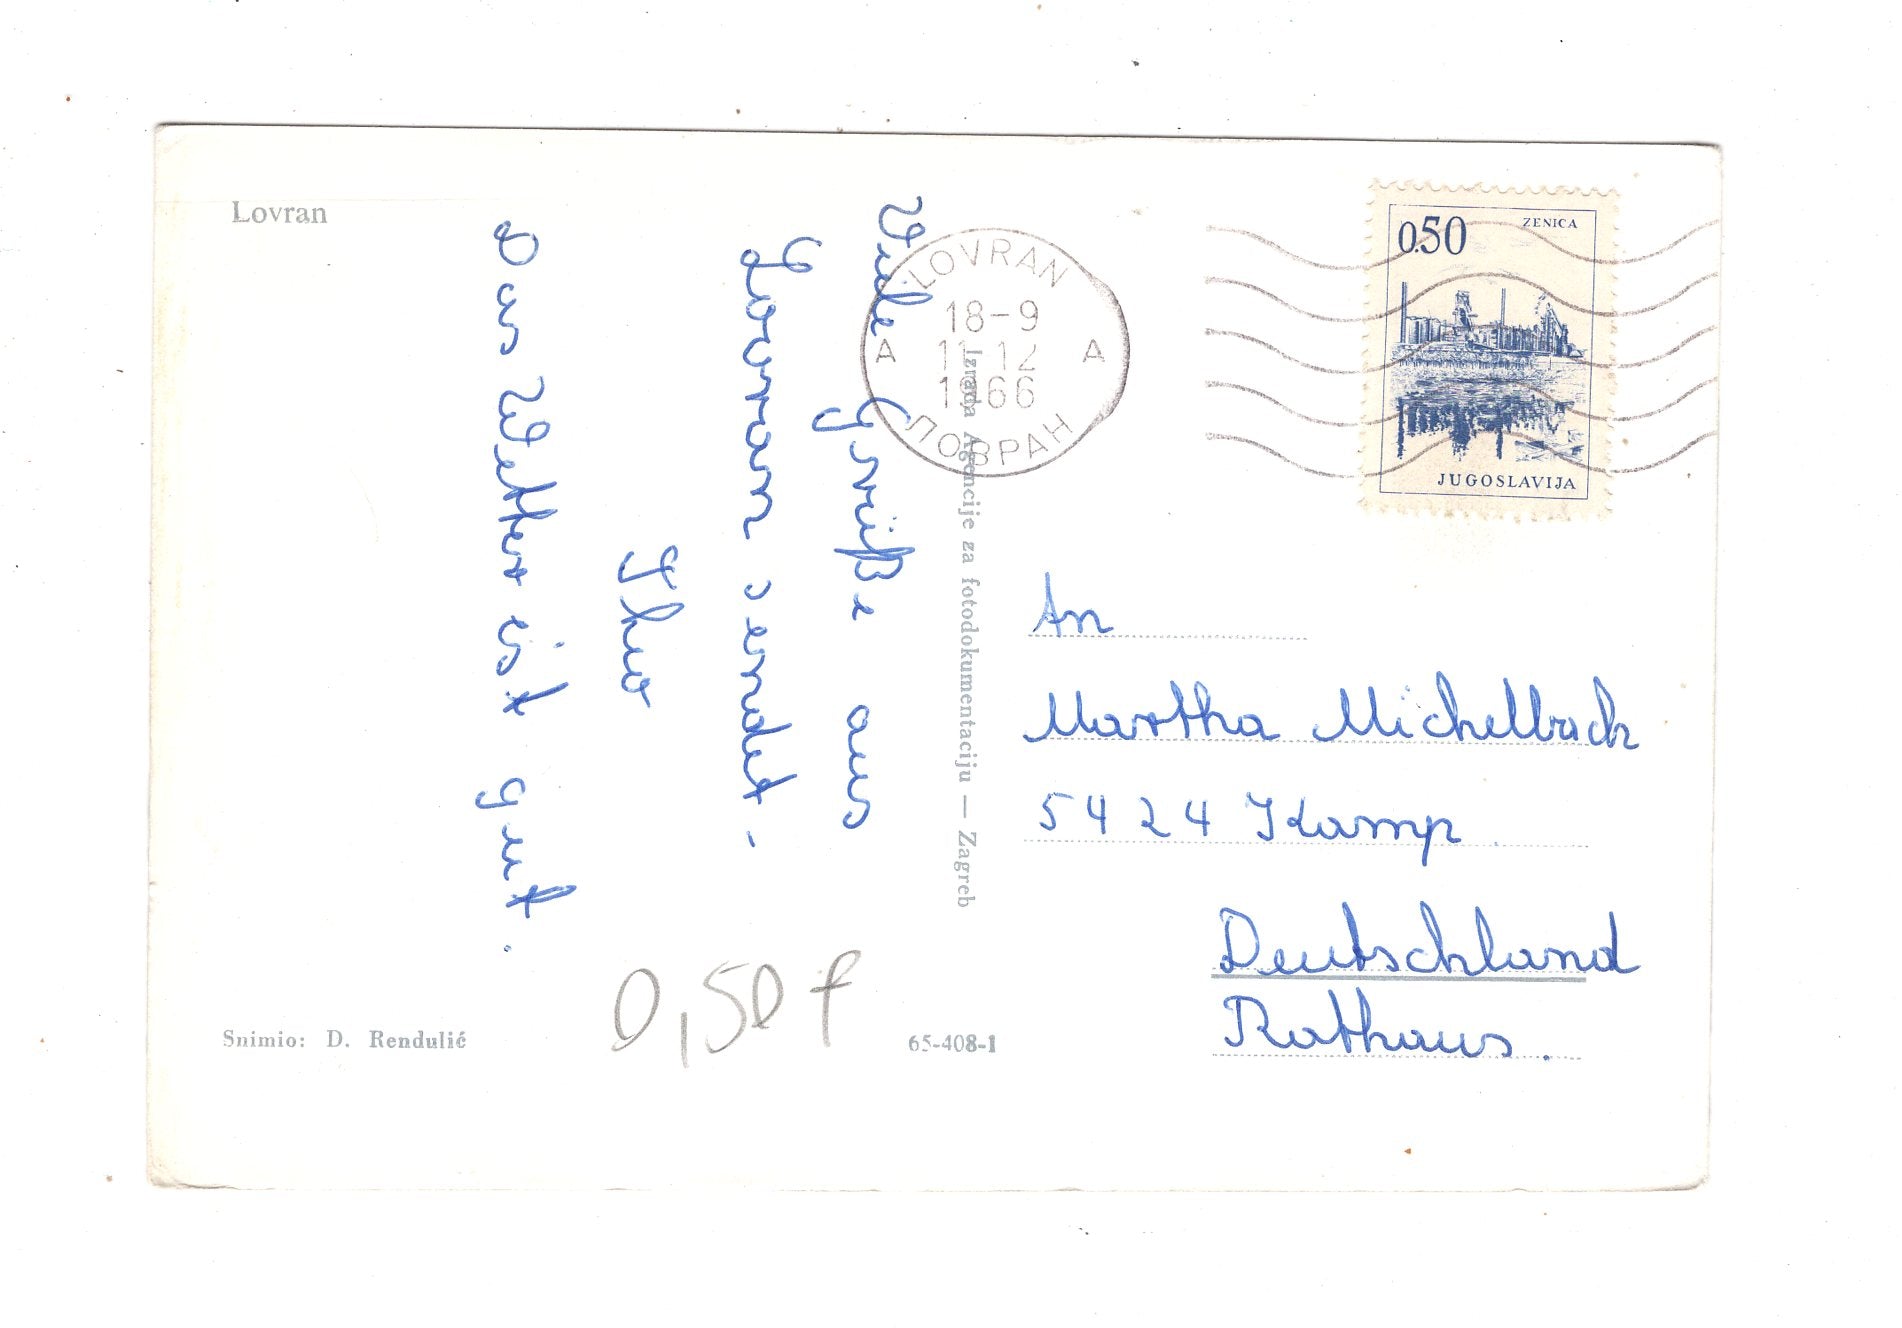 Lovran
Viele Grüße aus
Lovran sendet -
Ihr
Das Wetter ist gut.
Snimio: D. Rendulić
0,50 f
65-408-1
Izrada Agencije za fotodokumentaciju — Zagreb
LOVRAN
18-9
A 11-12 A
1966
ЛОВРАН
0.50 ZENICA
JUGOSLAVIJA
An
Martha Michelbach
5424 Kamp
Deutschland
Rathaus.